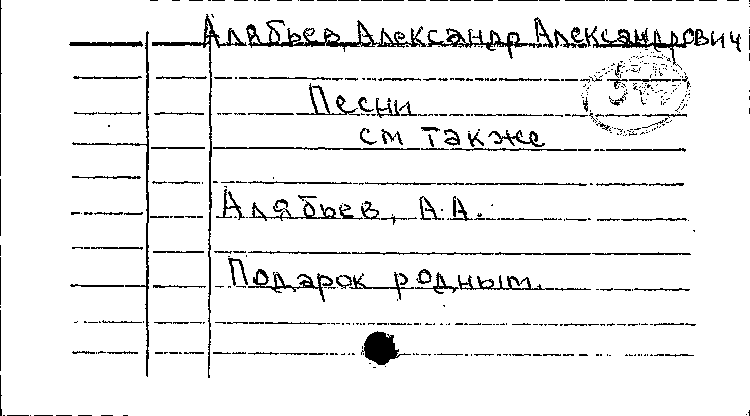 Алябьев, Александр Александрович
Песни
см также
Алябьев, А.А.
Подарок родным.